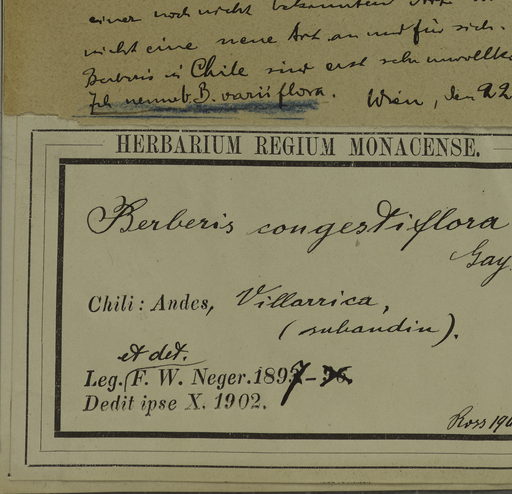 einer noch nicht bekannten Art
nicht eine neue Art an und für sich.
Berberis in Chile sind erst sehr unvollko
Ich nenne B. variiflora. Wien, den 22
HERBARIUM REGIUM MONACENSE.
Berberis congestiflora
Gay.
Chili: Andes, Villarrica,
(subandin).
et det.
Leg. F. W. Neger. 1897
Dedit ipse X. 1902.
Ross 190